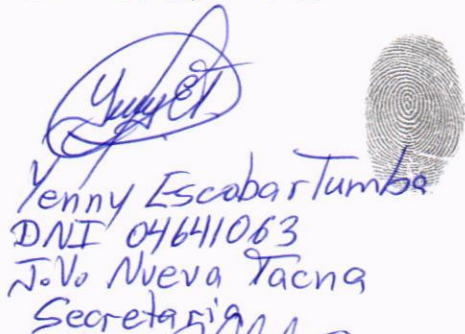 Yenny Escobar Tumba
DNI 04641063
J.V. Nueva Tacna
Secretaria